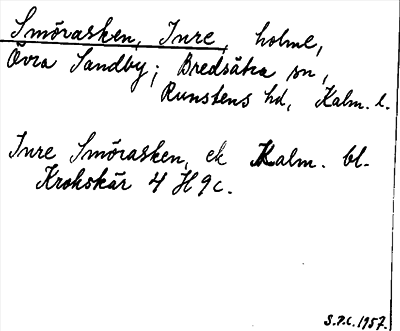 Smörasken, Inre, holme,
Övra Sandby; Bredsätra sn,
Runstens hd, Kalm. l.
Inre Smörasken, ek Kalm. bl.
Krokskär 4 H 9 c.
S.P.C. 1957.